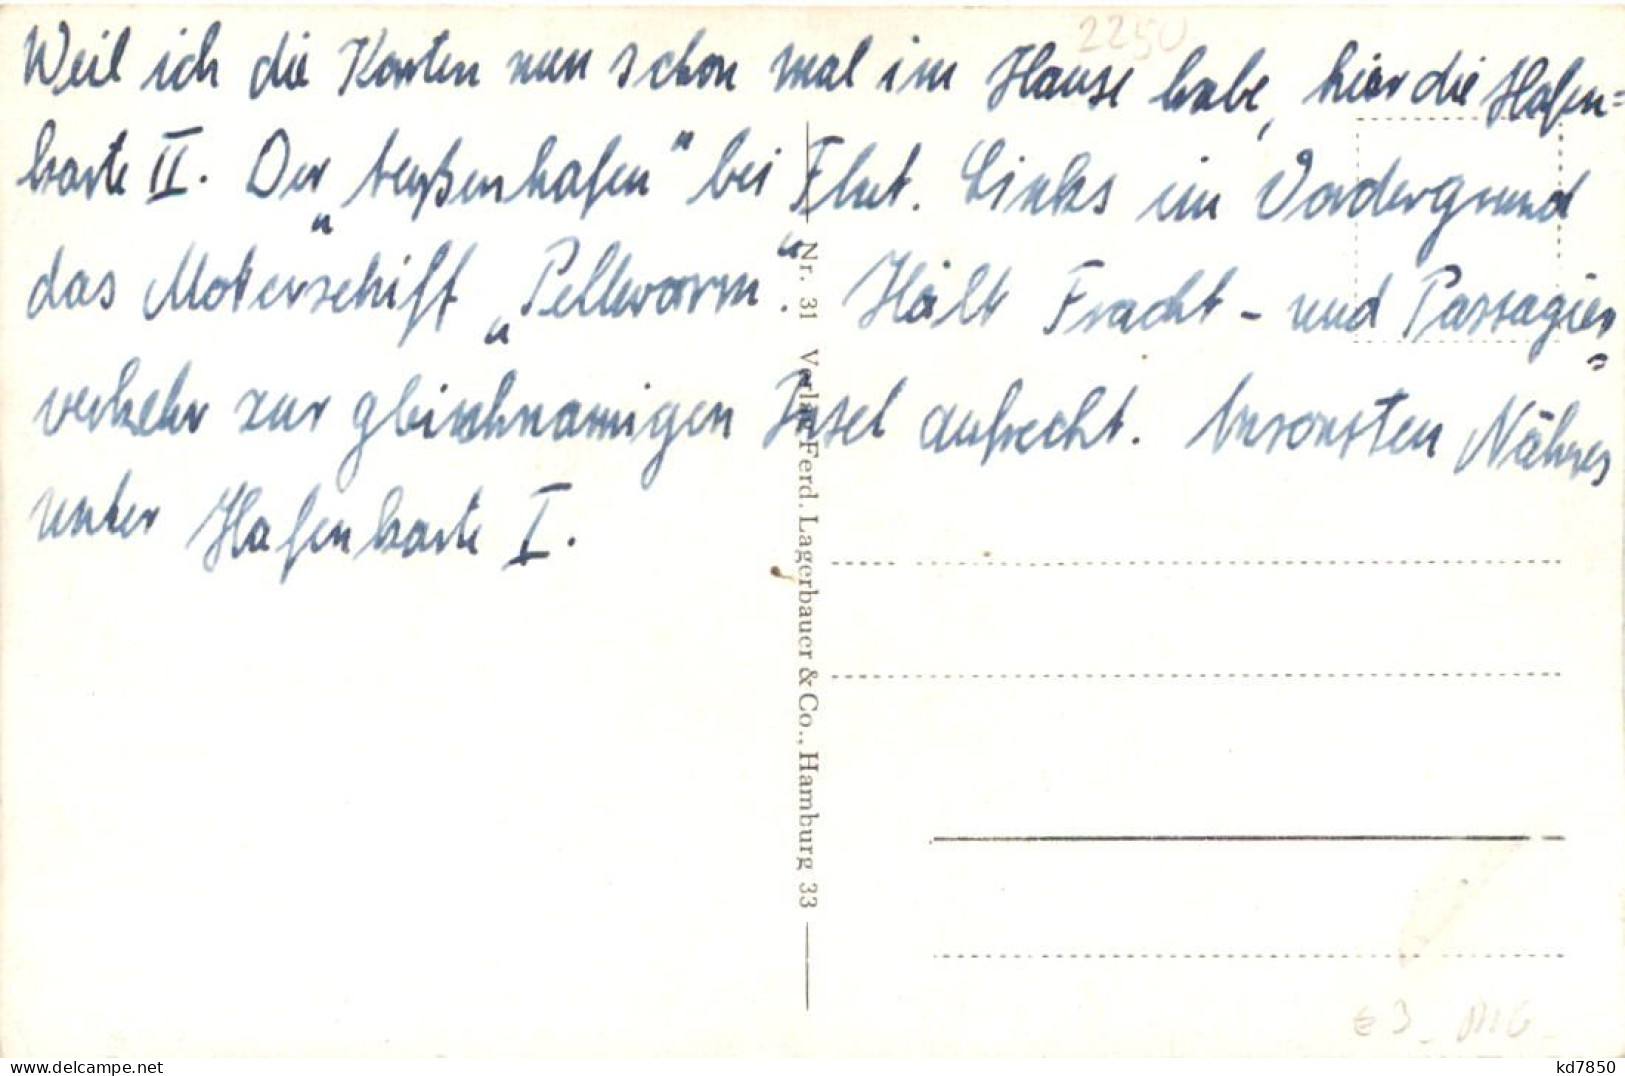 2250
Weil ich die Karten nun schon mal im Hause habe, hier die Hafen=
karte II. Der „Außenhafen" bei Flut. Links im Vordergrund
das Motorschiff „Pellworm". Hält Fracht- und Passagier=
verkehr zur gleichnamigen Insel aufrecht. Ansonsten Nähres
unter Hafenkarte I.
Nr. 31 Verlag Ferd. Lagerbauer & Co., Hamburg 33
€ 3
delcampe.net
kd7850